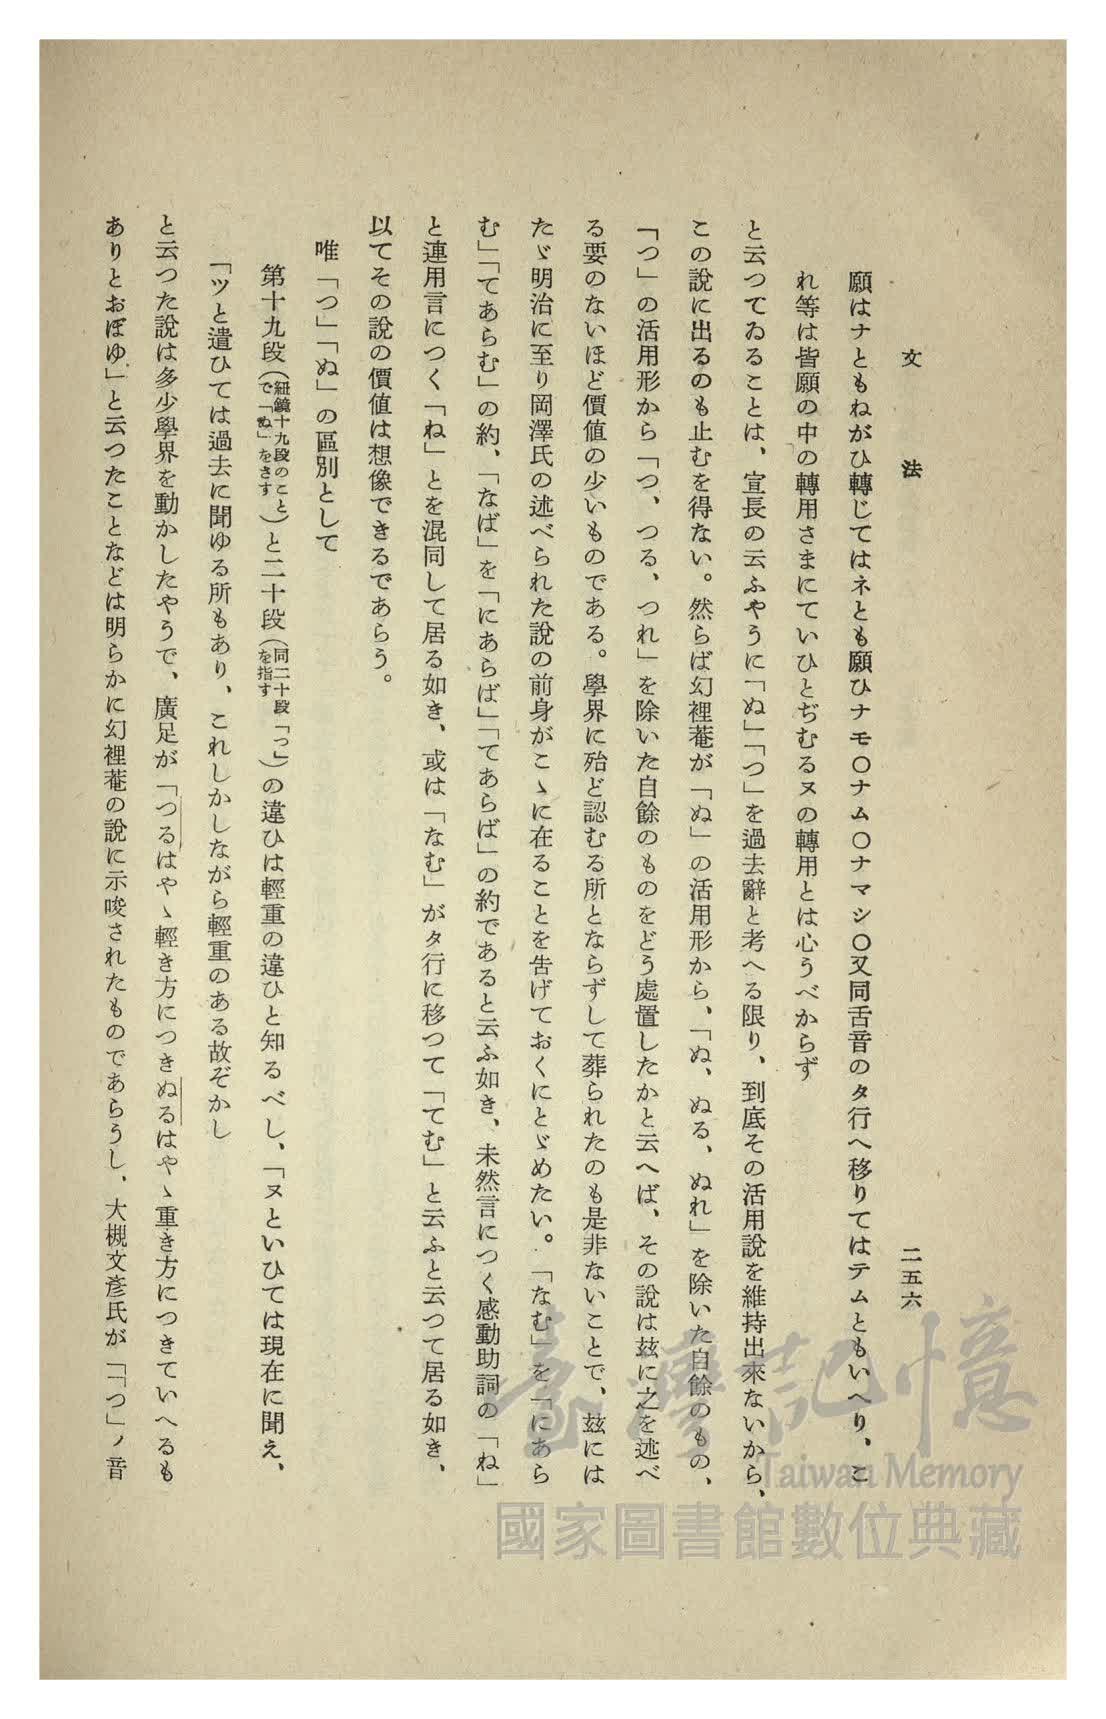 文法
二五六
願はナともねがひ轉じてはネとも願ひナモ〇ナム〇ナマシ〇又同舌音のタ行へ移りてはテムともいへり、こ
れ等は皆願の中の轉用さまにていひとぢむるヌの轉用とは心うべからず
と云つてゐることは、宣長の云ふやうに「ぬ」「つ」を過去辭と考へる限り、到底その活用說を維持出來ないから、
この說に出るのも止むを得ない。然らば幻裡菴が「ぬ」の活用形から、「ぬ、ぬる、ぬれ」を除いた自餘のもの、
「つ」の活用形から「つ、つる、つれ」を除いた自餘のものをどう處置したかと云へば、その說は玆に之を述べ
る要のないほど價値の少いものである。學界に殆ど認むる所とならずして葬られたのも是非ないことで、玆には
たゞ明治に至り岡澤氏の述べられた說の前身がこゝに在ることを吿げておくにとゞめたい。「なむ」を「にあら
む」「てあらむ」の約、「なば」を「にあらば」「てあらば」の約であると云ふ如き、未然言につく感動助詞の「ね」
と連用言につく「ね」とを混同して居る如き、或は「なむ」がタ行に移つて「てむ」と云ふと云つて居る如き、
以てその說の價値は想像できるであらう。
唯「つ」「ぬ」の區別として
第十九段(紐鏡十九段のことで「ぬ」をさす)と二十段(同二十段「つ」を指す)の違ひは輕重の違ひと知るべし、「ヌといひては現在に聞え、
「ツと遣ひては過去に聞ゆる所もあり、これしかしながら輕重のある故ぞかし
と云つた說は多少學界を動かしたやうで、廣足が「つるはやゝ輕き方につきぬるはやゝ重き方につきていへるも
ありとおぼゆ」と云つたことなどは明らかに幻裡菴の說に示唆されたものであらうし、大槻文彥氏が「「つ」ノ音
臺灣記憶
Taiwan Memory
國家圖書館數位典藏